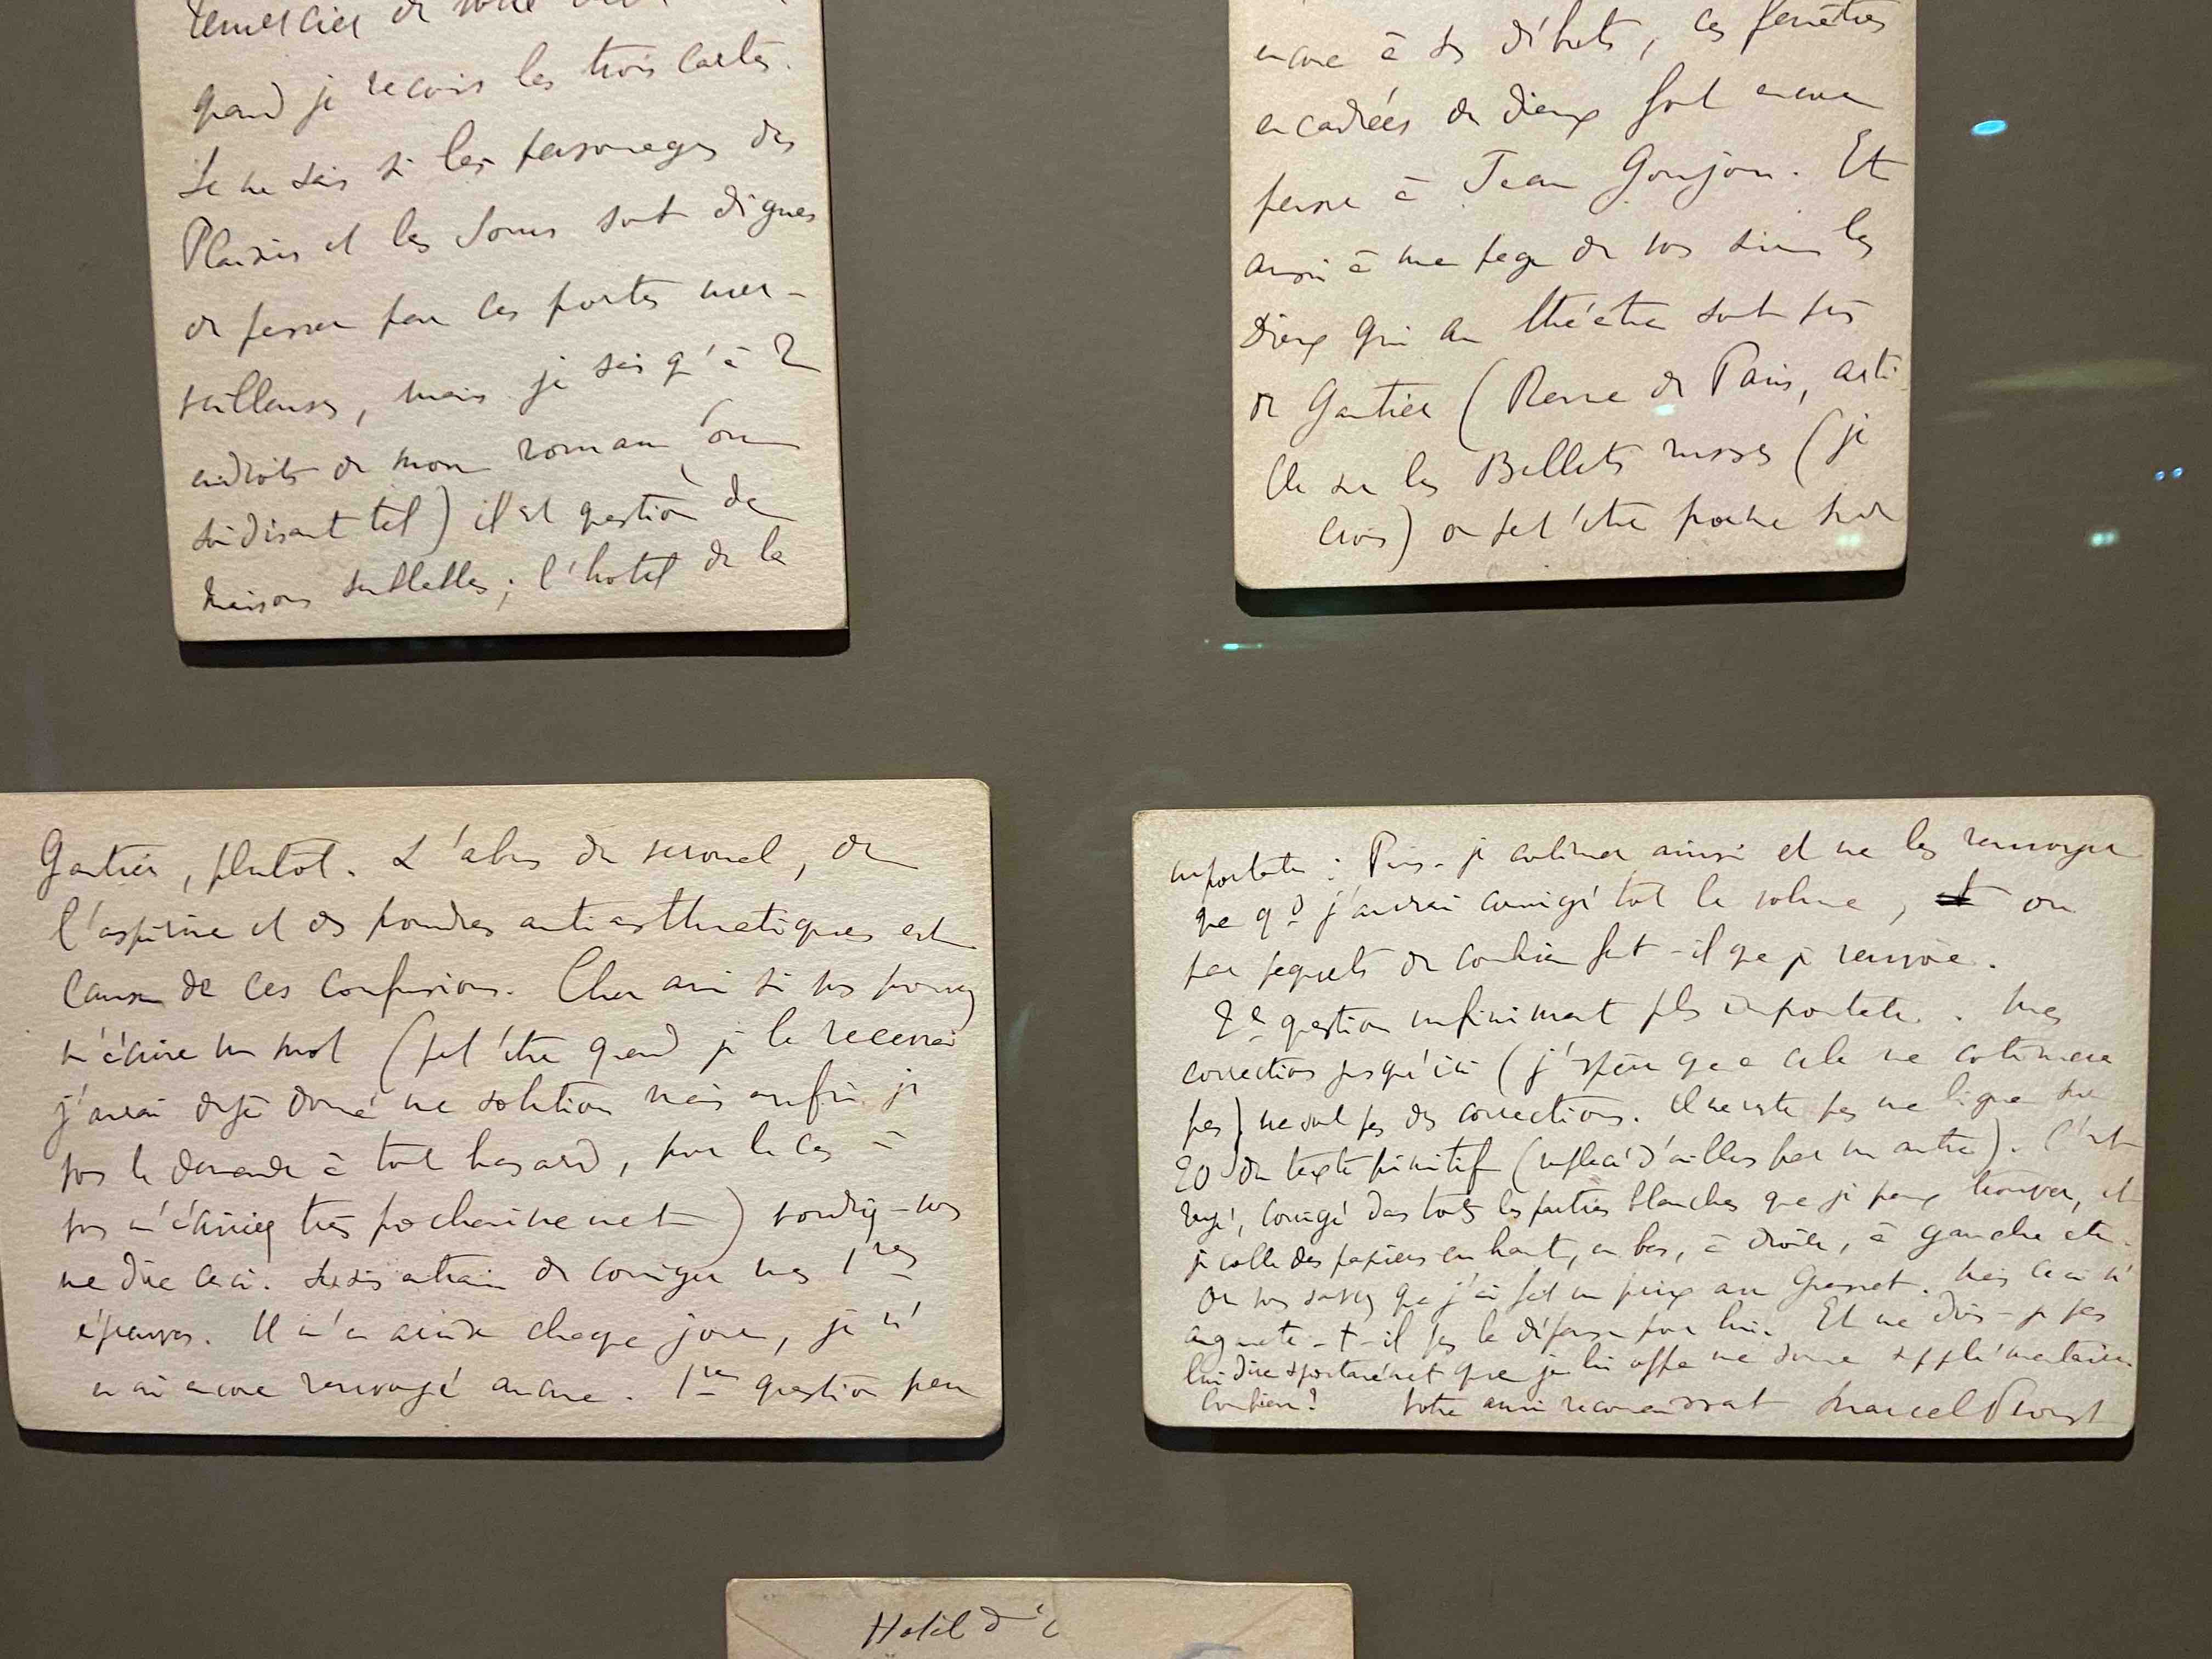 remercier de votre
quand je reçois les trois cartes.
Je ne sais si les personnages des
Plaisirs et les Jours sont dignes
de passer par ces portes mer-
veilleuses, mais je sais qu'à 2
endroits de mon roman (ou
soidisant tel) il est question de
maisons semblables ; l'hotel de la
encore à ses débuts, ces fenêtres
encadrées de dieux font encore
penser à Jean Goujon. Et
aussi à une page de vos
dieux qui au théâtre sont
de Gautier (Revue de Paris, arti-
cle sur les Ballets russes (je
crois) ou peut'être poème sur
Gautier, plutot. L'abus du veronal, de
l'aspirine et des poudres antiasthmatiques est
cause de ces confusions. Cher ami si vous pouvez
m'écrire un mot (peut'être quand je le recevrai
j'aurai déjà donné une solution mais enfin je
vous le demande à tout hasard, pour le cas où
vous m'écririez très prochainement) voudriez-vous
me dire ceci. Je suis en train de corriger mes 1res
épreuves. Il m'en arrive chaque jour, je n'
en ai encore renvoyé aucune. 1re question peu
importante : Puis-je continuer ainsi et ne les renvoyer
que qd j'aurai corrigé tout le volume, ou
par paquets de combien faut-il que je renvoie.
2e question infiniment plus importante. Mes
corrections jusqu'ici (j'espère que cela ne continuera
pas) ne sont pas des corrections. Il ne reste pas une ligne sur
20 du texte primitif (remplacé d'ailleurs par un autre). C'est
rayé, corrigé dans toutes les parties blanches que je peux trouver, et
je colle des papiers en haut, en bas, à droite, à gauche etc.
Or vous savez que j'ai fait un prix avec Grasset. Mais ceci n'
augmente-t-il pas la dépense pour lui. Et ne dois-je pas
lui dire spontanément que je lui offre une somme supplémentaire
Combien? Votre ami reconnaissant Marcel Proust
Hotel d'